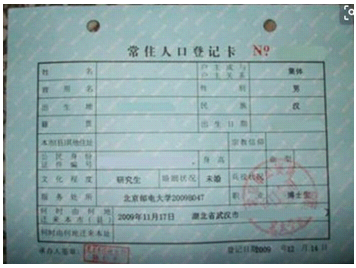 常住人口登记卡 No
姓名 户主或与户主关系 集体
曾用名 性别 男
出生地 民族 汉
籍贯 出生日期
本市(县)其他住址 宗教信仰
公民身份证件编号 身高 血型
文化程度 研究生 婚姻状况 未婚 兵役状况
服务处所 北京邮电大学20090047 职业 博士生
何时由何地迁来本市(县) 2009年11月17日 湖北省武汉市
何时由何地迁来本址
承办人签章: 登记日期2009年12月14日